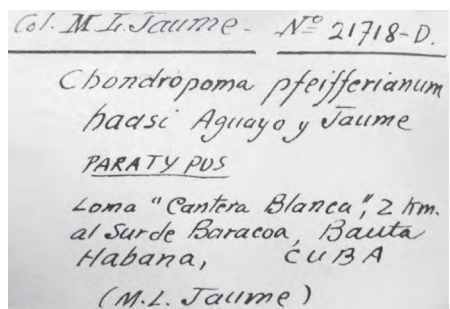 Col. M. L. Jaume - Nº 21718-D.
Chondropoma pfeifferianum
haasi Aguayo y Jaume
PARATYPUS
Loma "Cantera Blanca", 2 km.
al Sur de Baracoa, Bauta
Habana, CUBA
(M.L. Jaume)